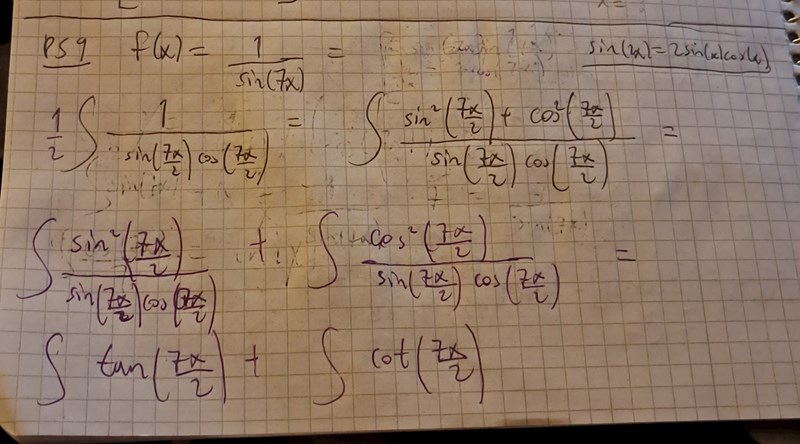 PS9 f(x) = 1/sin(7x) = sin(2x) = 2 sin(x) cos(x)
1/2 ∫ 1/(sin(7x/2) cos(7x/2)) = ∫ (sin²(7x/2) + cos²(7x/2))/(sin(7x/2) cos(7x/2)) =
∫ sin²(7x/2)/(sin(7x/2) cos(7x/2)) + ∫ cos²(7x/2)/(sin(7x/2) cos(7x/2)) =
∫ tan(7x/2) + ∫ cot(7x/2)